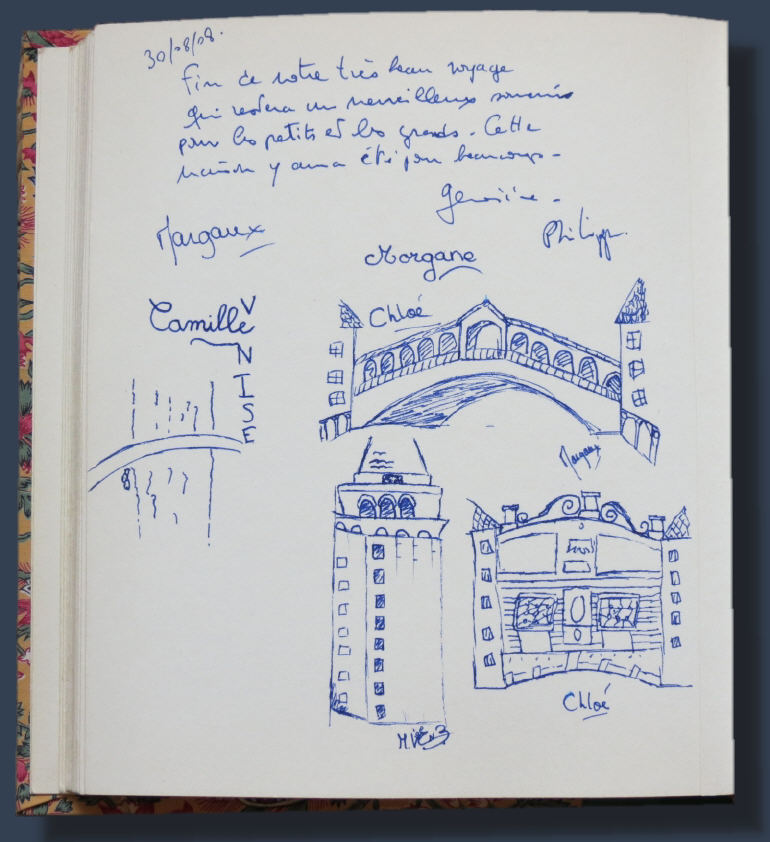 30/08/08.
Fin de notre très beau voyage
qui restera un merveilleux souvenir
pour les petits et les grands. Cette
maison y aura été pour beaucoup.
Geneviève.
Philippe.
Margaux
Morgane
Camille
Chloé
VENISE
Margaux
Chloé